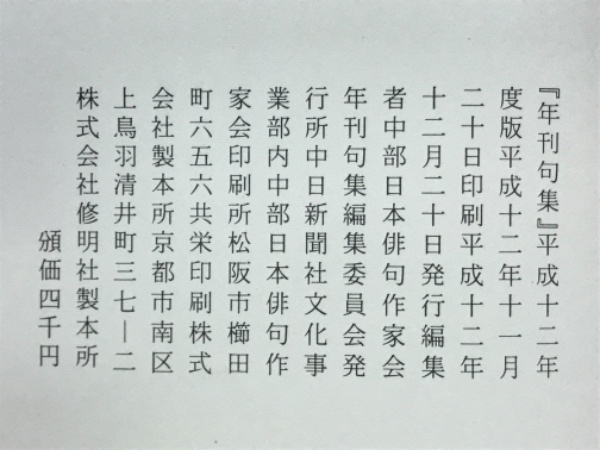 『年刊句集』平成十二年
度版平成十二年十一月
二十日印刷平成十二年
十二月二十日発行編集
者中部日本俳句作家会
年刊句集編集委員会発
行所中日新聞社文化事
業部内中部日本俳句作
家会印刷所松阪市櫛田
町六五六共栄印刷株式
会社製本所京都市南区
上鳥羽清井町三七―二
株式会社修明社製本所
頒価四千円